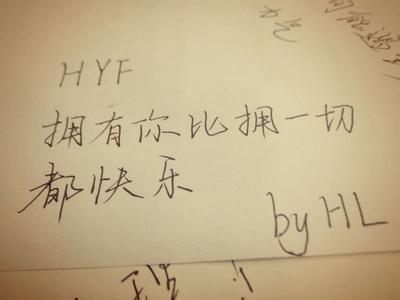 力气
HYF
拥有你比拥一切
都快乐
by HL